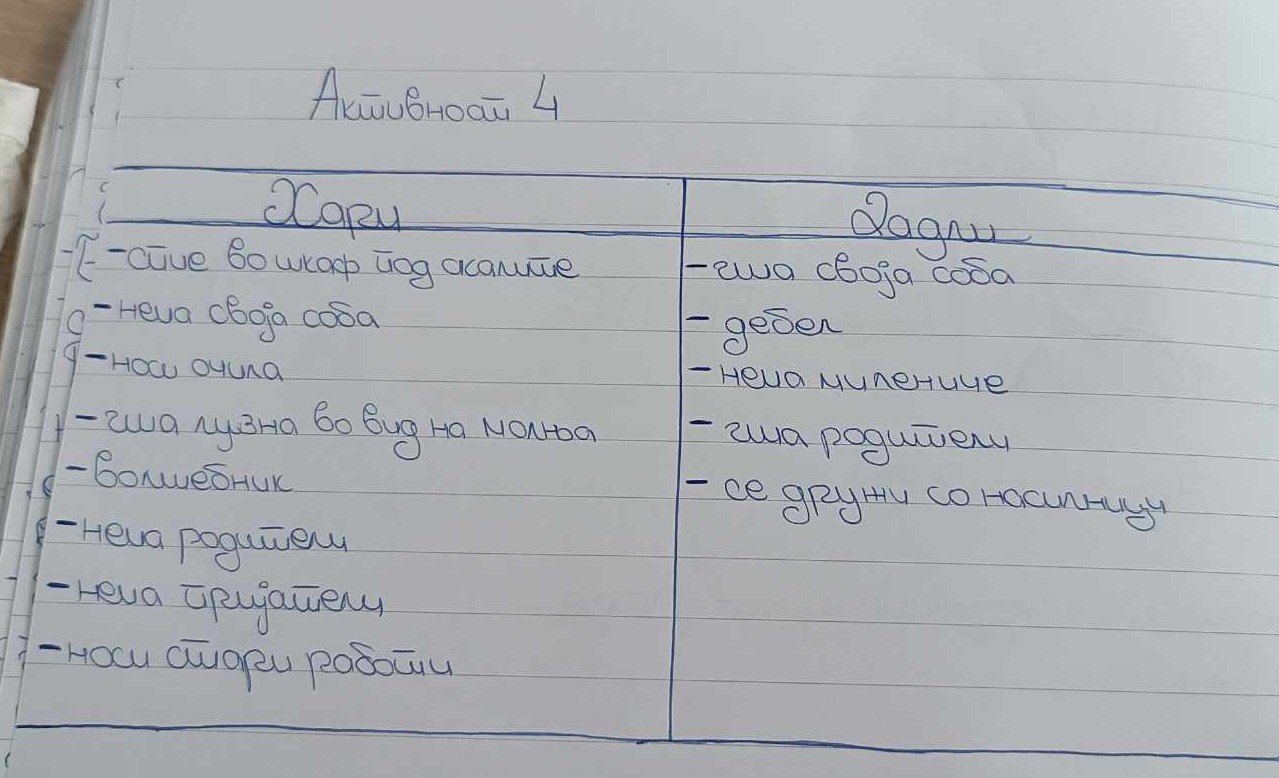 Активност 4
Хари
Дадли
-спие во шкаф под скалите
-нема своја соба
-носи очила
-има лузна во вид на молња
-волшебник
-нема родители
-нема пријатели
-носи стари работи
-има своја соба
-дебел
-нема милениче
-има родители
-се дружи со насилници